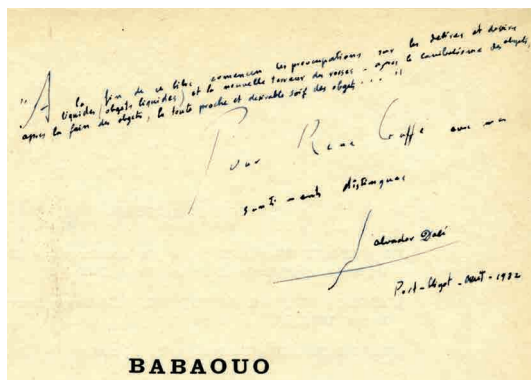 "A la fin de ce libre comencen les preocupations sur les delires et desirs
liquides (objets liquides) et la nouvelle terreur des rosses – après le canibalisme des objets,
apres la faim des objets, la toute proche et desirable soif des objets . . . "
Pour René Gaffé avec mes
sentiments distingues
Salvador Dalí
Port-Lligat – Août – 1932
BABAOUO